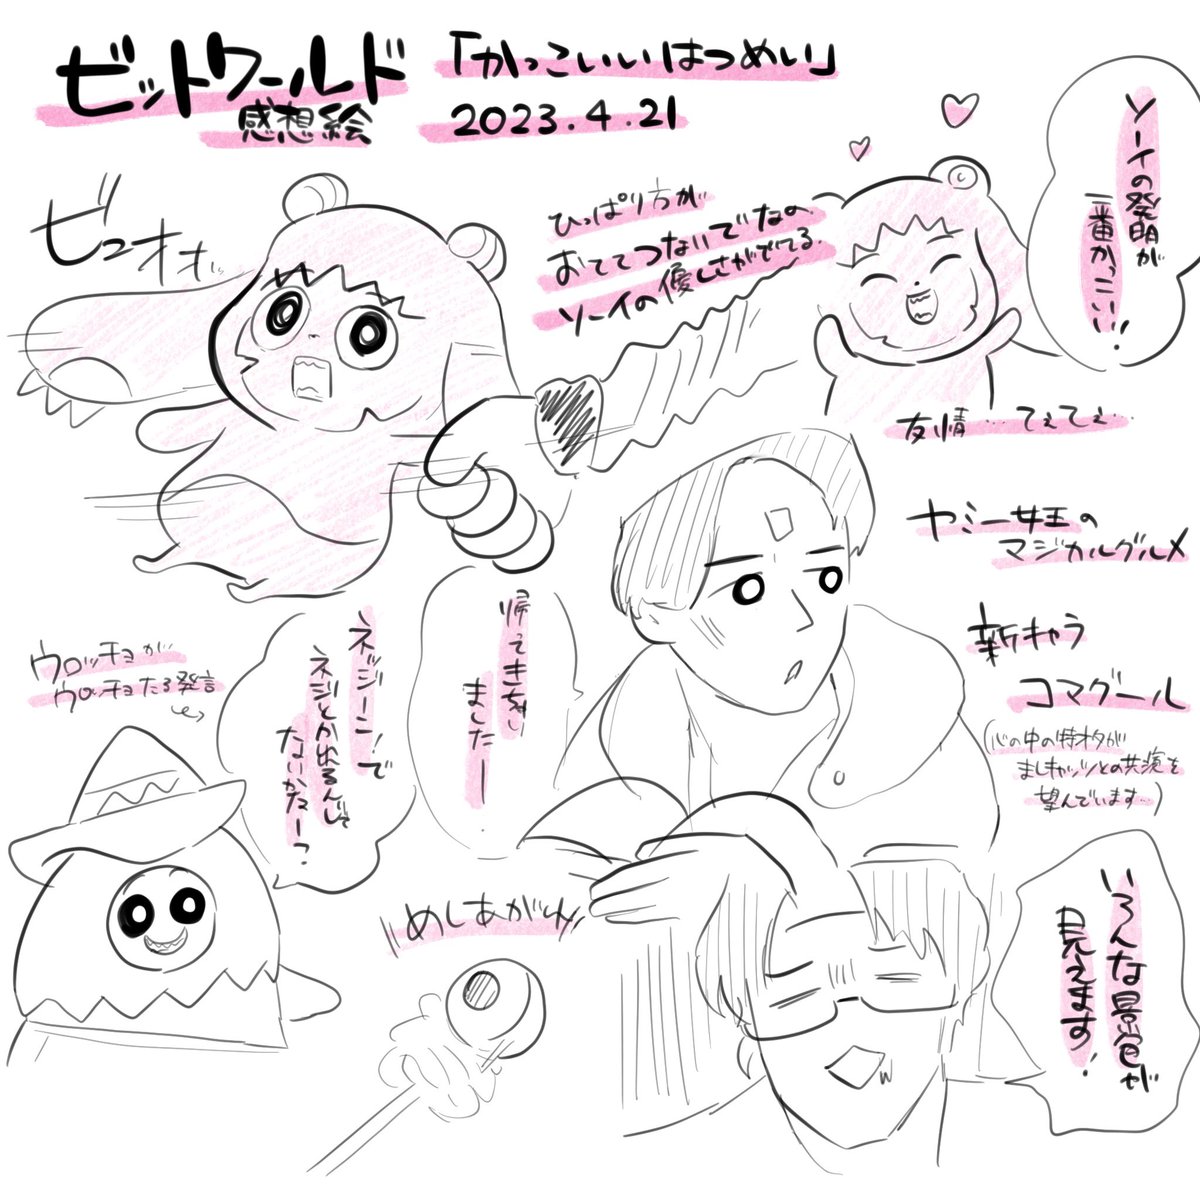 ビットワールド
感想絵
「かっこいいはつめい」
2023.4.21
ビュオオォ
ひっぱり方が
おててつないでなの
ソーイの優しさがでてる
ソーイの発明が
一番かっこいい!
友情…てぇてぇ…
ヤミー女王の
マジカルグルメ
新キャラ
コマグール
(心の中の特オタが
ましキャッツとの共演を
望んでいます…)
帰ってきちゃい
ました―
ネッジーン!で
ネジとか出るんじゃ
ないかなーっ?
ウロッチョが
ウロッチョたる発言
めしあがれ
いろんな景色が
見えます!